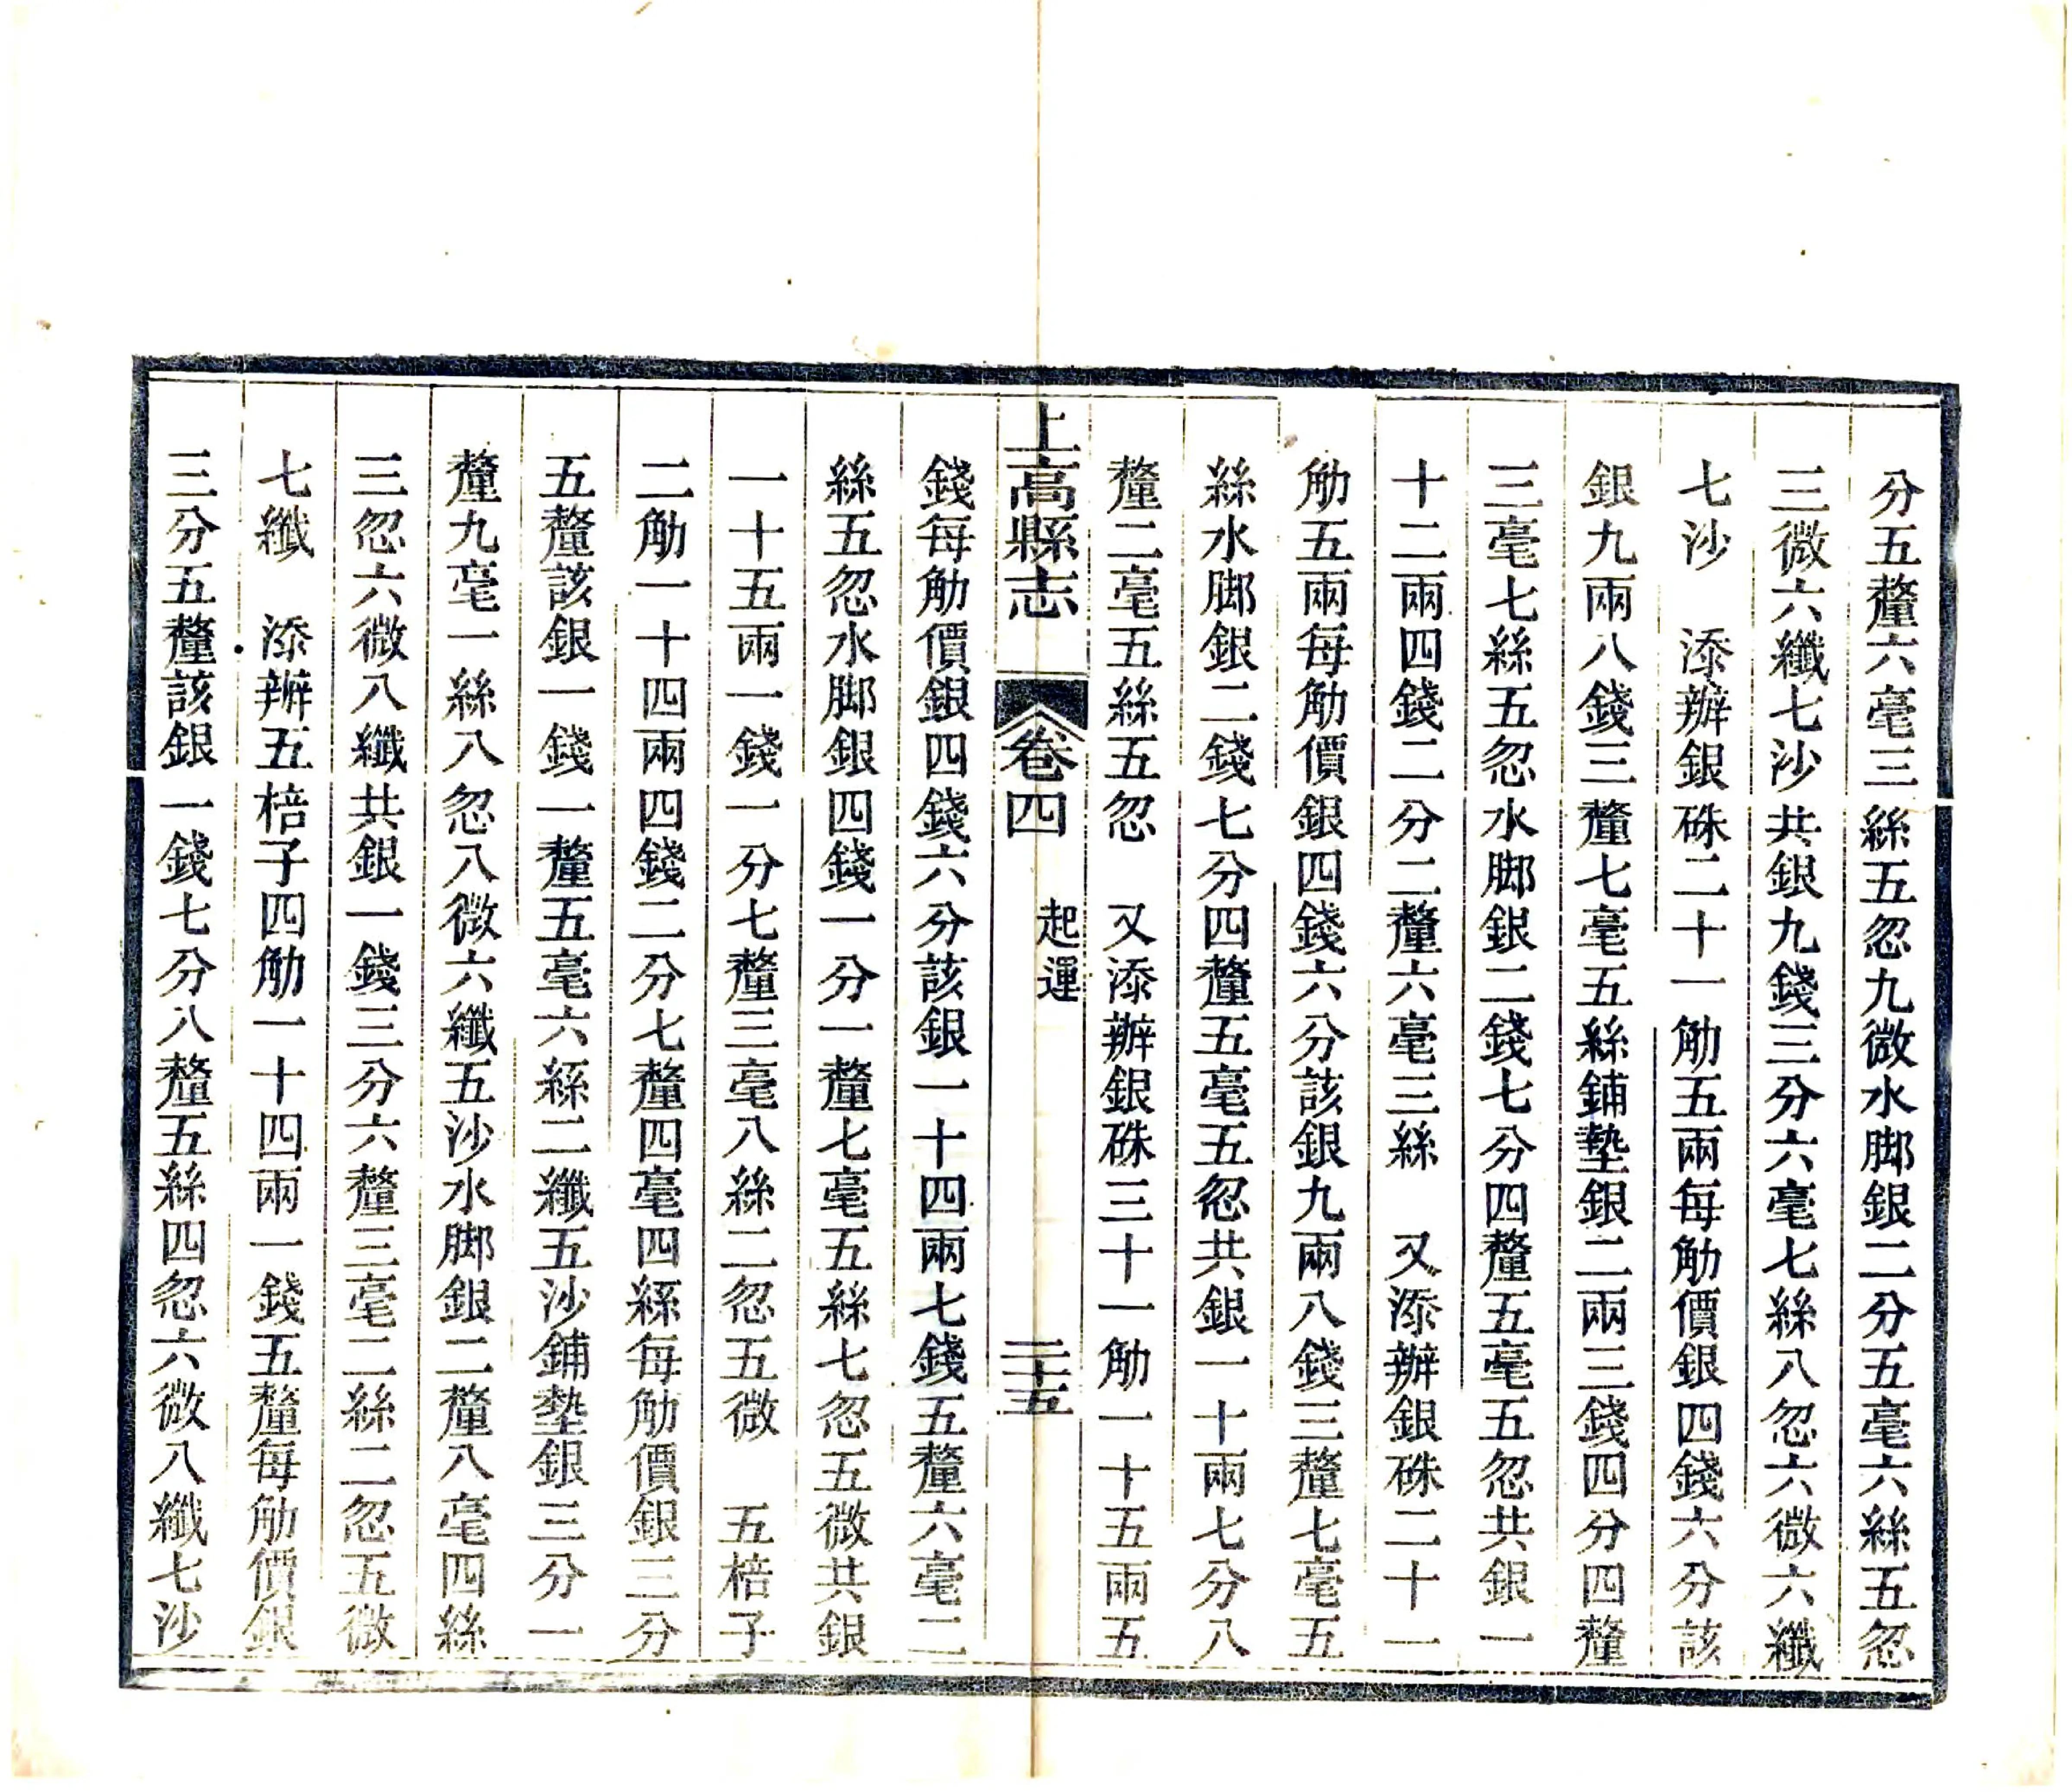 分五釐六毫三絲五忽九微水脚銀二分五毫六絲五忽
三微六纖七沙共銀九錢三分六毫七絲八忽六微六纖
七沙　添辦銀硃二十一觔五兩每觔價銀四錢六分該
銀九兩八錢三釐七毫五絲鋪墊銀二兩三錢四分四釐
三毫七絲五忽水脚銀二錢七分四釐五毫五忽共銀一
十二兩四錢二分二釐六毫三絲　又添辦銀硃二十一
觔五兩每觔價銀四錢六分該銀九兩八錢三釐七毫五
絲水脚銀二錢七分四釐五毫五忽共銀一十兩七分八
釐二毫五絲五忽　又添辦銀硃三十一觔一十五兩五
上高縣志　卷四　起運　二十五
錢每觔價銀四錢六分該銀一十四兩七錢五釐六毫二
絲五忽水脚銀四錢一分一釐七毫五絲七忽五微共銀
一十五兩一錢一分七釐三毫八絲二忽五微　五棓子
二觔一十四兩四錢二分七釐四毫四絲每觔價銀三分
五釐該銀一錢一釐五毫六絲二纖五沙鋪墊銀三分一
釐九毫一絲八忽八微六纖五沙水脚銀二釐八毫四絲
三忽六微八纖共銀一錢三分六釐三毫二絲二忽五微
七纖　添辦五棓子四觔一十四兩一錢五釐每觔價銀
三分五釐該銀一錢七分八釐五絲四忽六微八纖七沙